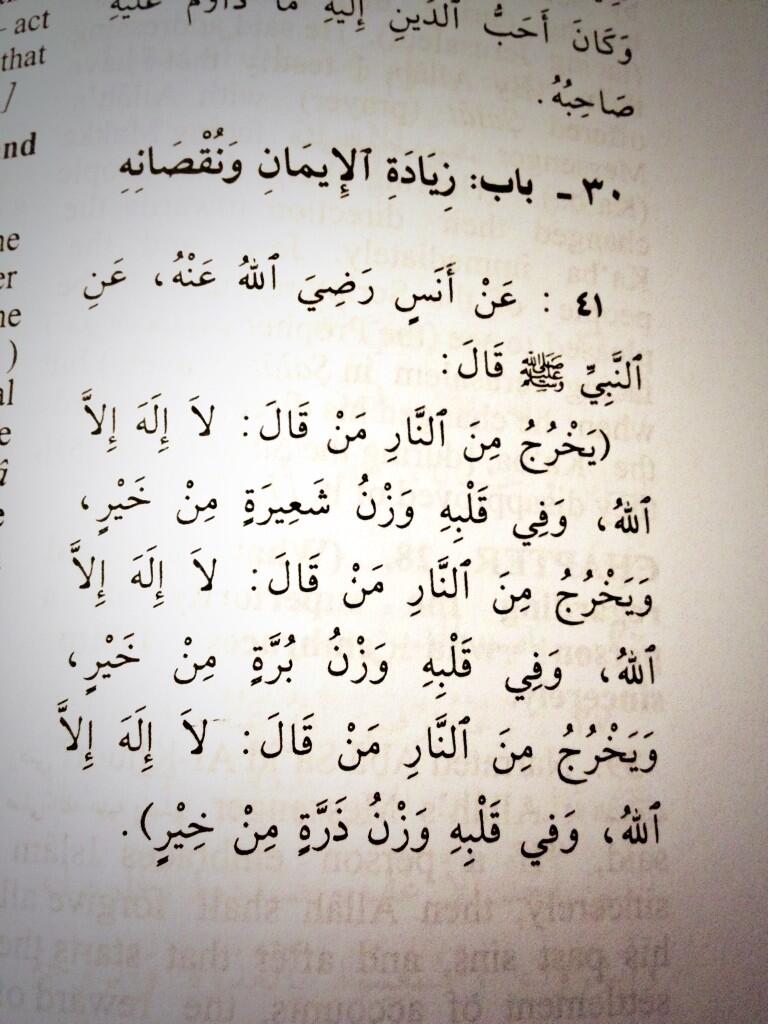 act
وَكَانَ أَحَبُّ ٱلدِّينِ إِلَيْهِ مَا دَاوَمَ عَلَيْهِ
that
صَاحِبُهُ.
]
nd
٣٠ - باب: زِيَادَةِ ٱلإِيمَانِ وَنُقْصَانِهِ
٤١ : عَنْ أَنَسٍ رَضِيَ ٱللهُ عَنْهُ، عَنِ
ٱلنَّبِيِّ ﷺ قَالَ:
(يَخْرُجُ مِنَ ٱلنَّارِ مَنْ قَالَ: لاَ إِلَهَ إِلاَّ
ٱللهُ، وَفِي قَلْبِهِ وَزْنُ شَعِيرَةٍ مِنْ خَيْرٍ،
وَيَخْرُجُ مِنَ ٱلنَّارِ مَنْ قَالَ: لاَ إِلَهَ إِلاَّ
ٱللهُ، وَفِي قَلْبِهِ وَزْنُ بُرَّةٍ مِنْ خَيْرٍ،
وَيَخْرُجُ مِنَ ٱلنَّارِ مَنْ قَالَ: لاَ إِلَهَ إِلاَّ
ٱللهُ، وَفي قَلْبِهِ وَزْنُ ذَرَّةٍ مِنْ خِيْرٍ).